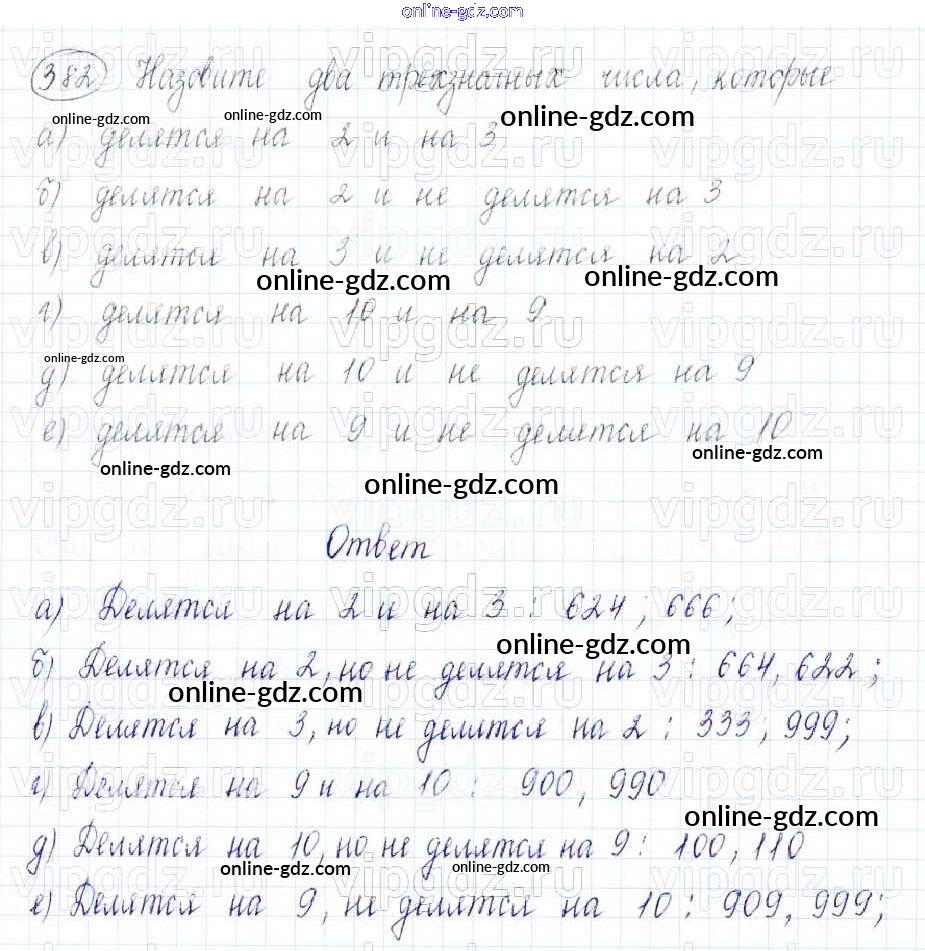 online-gdz.com
382 Назовите два трехзначных числа, которые
online-gdz.com online-gdz.com online-gdz.com
а) делятся на 2 и на 3
б) делятся на 2 и не делятся на 3
в) делятся на 3 и не делятся на 2
online-gdz.com online-gdz.com
г) делятся на 10 и на 9
online-gdz.com
д) делятся на 10 и не делятся на 9
е) делятся на 9 и не делятся на 10
online-gdz.com online-gdz.com
online-gdz.com
Ответ
а) Делятся на 2 и на 3 : 624 ; 666 ;
online-gdz.com
б) Делятся на 2, но не делятся на 3 : 664, 622 ;
online-gdz.com
в) Делятся на 3, но не делятся на 2 : 333 ; 999 ;
г) Делятся на 9 и на 10 : 900, 990
online-gdz.com
д) Делятся на 10, но не делятся на 9 : 100, 110
online-gdz.com online-gdz.com
е) Делятся на 9, не делятся на 10 : 909, 999 ;